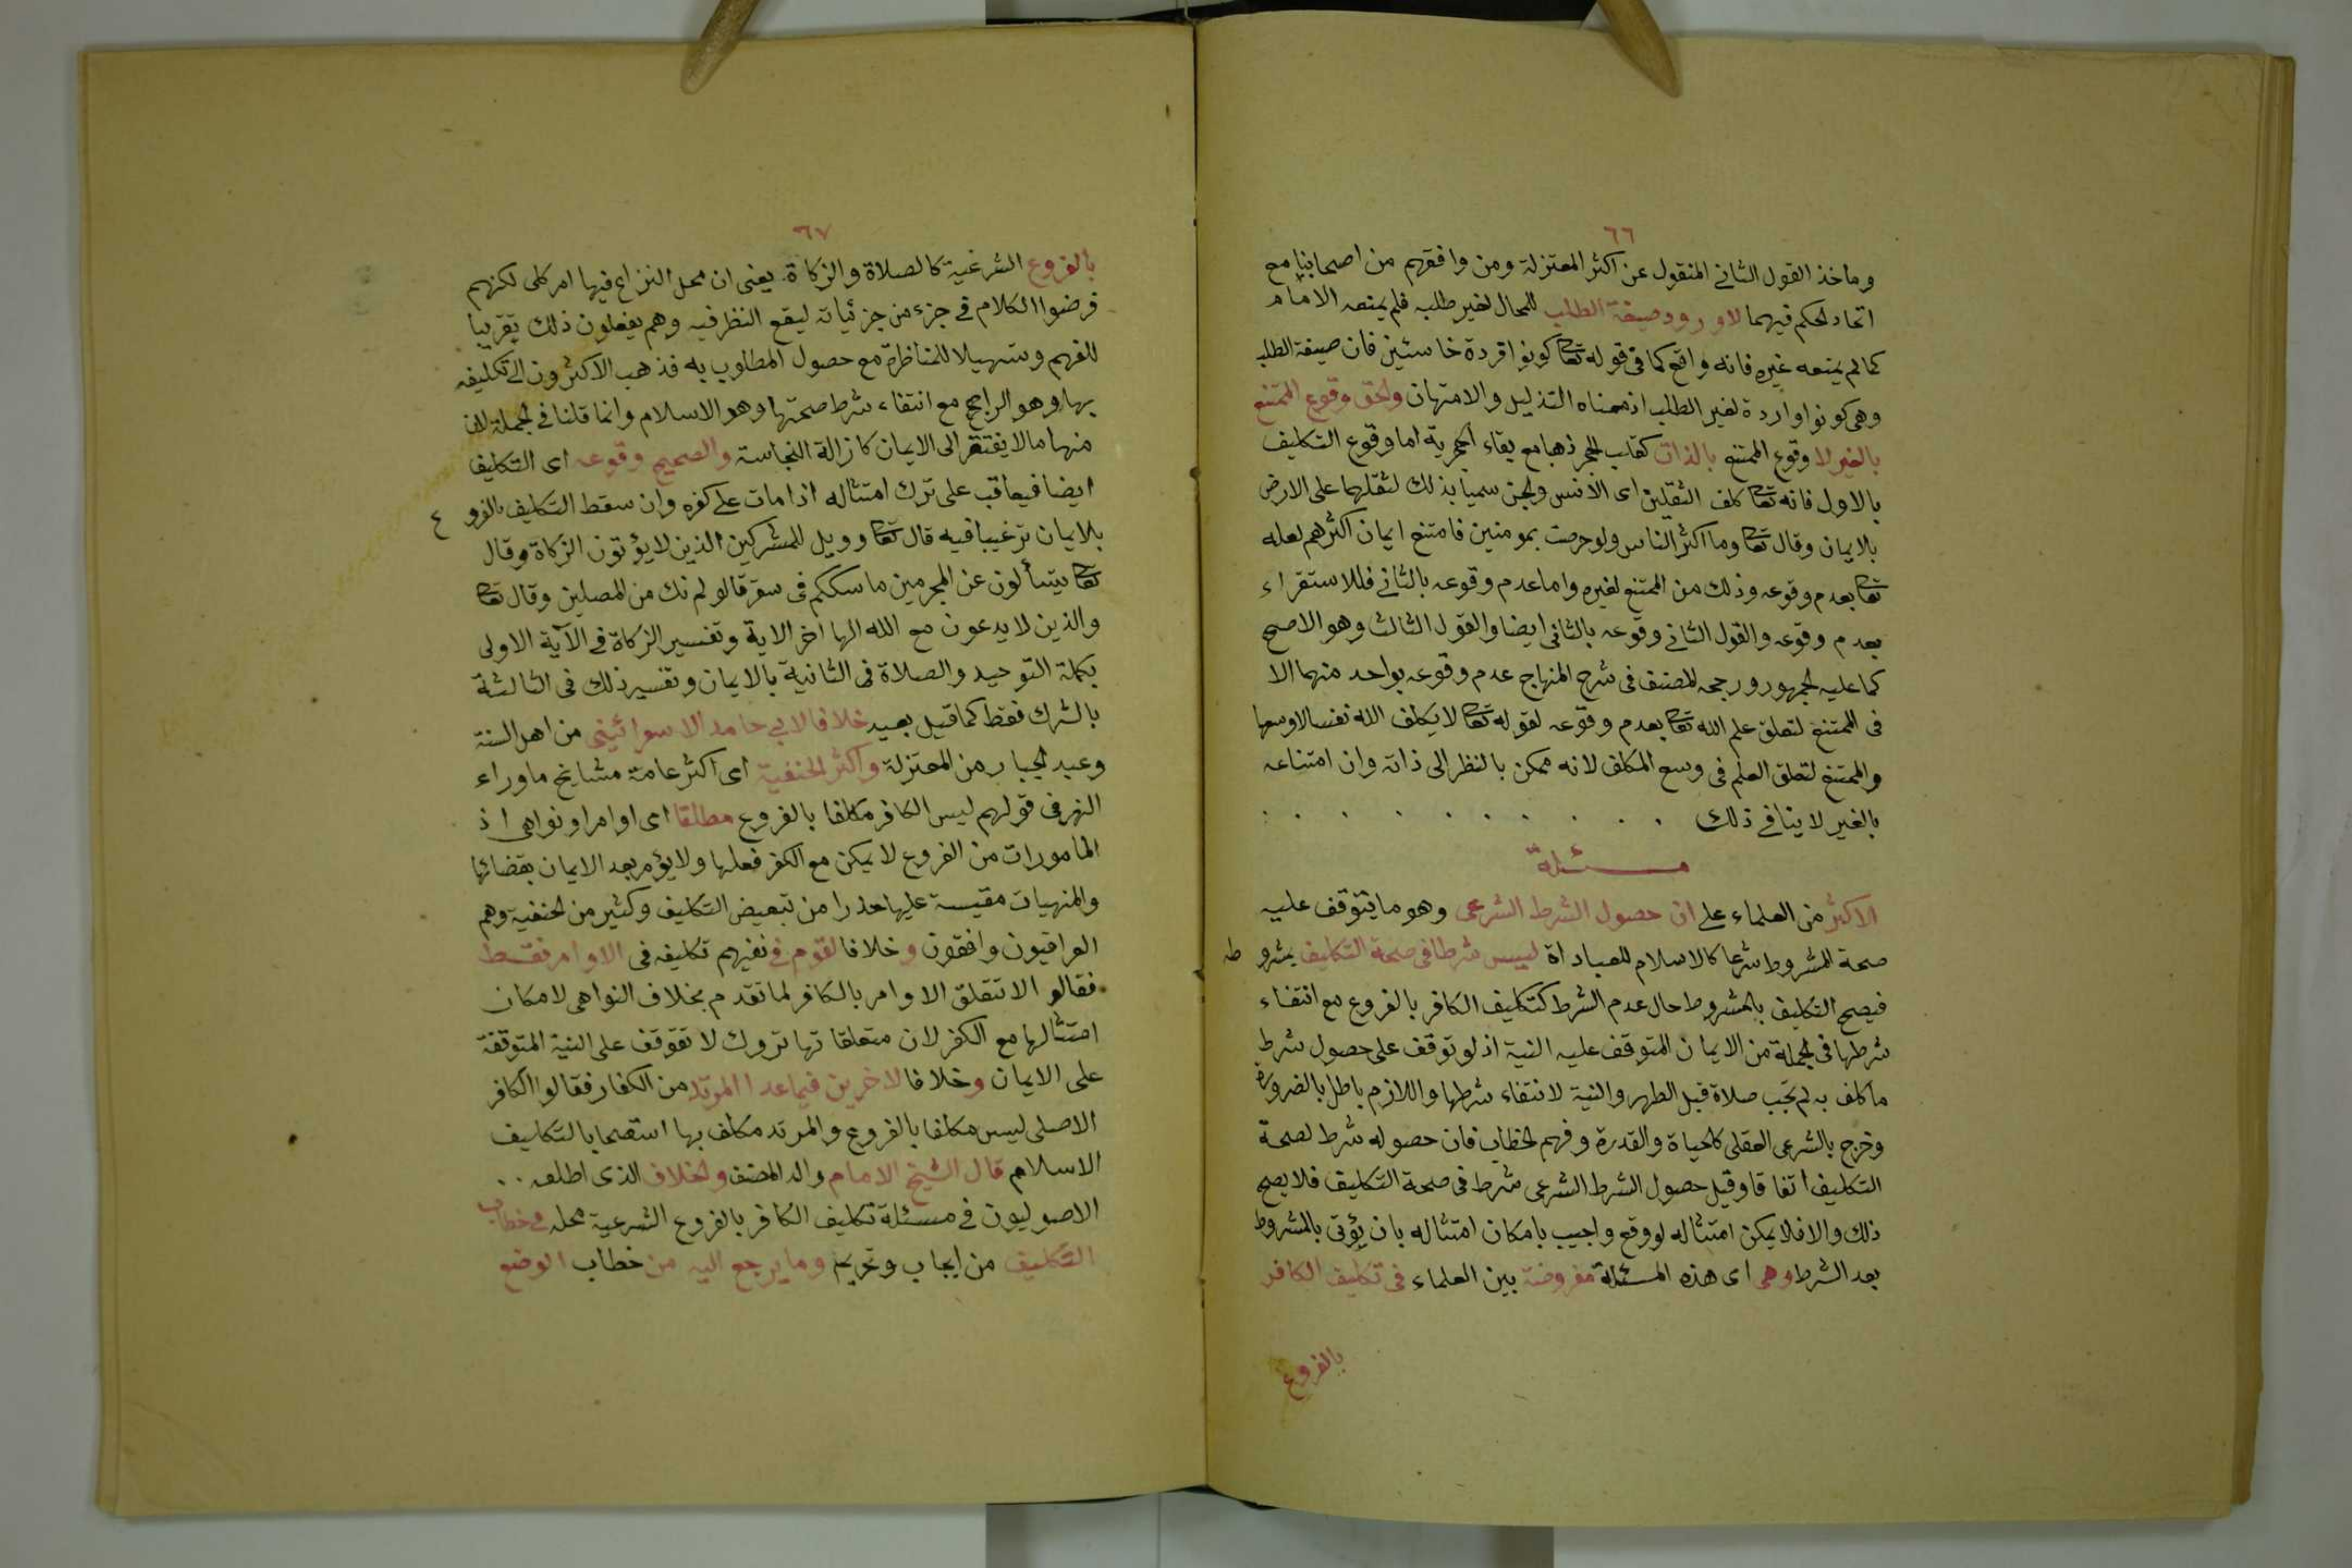 ٦٦
وماخذ القول الثاني المنقول عن اكثر المعتزلة ومن وافقهم من اصحابنا مع
اتحاد الحكم فيهما لاورود صيغة الطلب للمحال لغير طلبه فلم يمنعه الامام
كما لم يمنعه غيره فانه واقع كما في قوله تعا كونوا قردة خاسئين فان صيغة الطلب
وهي كونوا واردة لغير الطلب اذ معناه التذليل والامتهان والحق وقوع الممتنع
بالغير لا وقوع الممتنع بالذات كقلب الحجر ذهبا مع بقاء الحجرية اما وقوع التكليف
بالاول فانه تعا كلف الثقلين اى الانس والجن سميا بذلك لثقلهما على الارض
بالايمان وقال تعا وما اكثر الناس ولو حرصت بمومنين فامتنع ايمان اكثرهم لعله
تعا بعدم وقوعه وذلك من الممتنع لغيره واما عدم وقوعه بالثاني فللاستقراء
بعدم وقوعه والقول الثاني وقوعه بالثاني ايضا والقول الثالث وهو الاصح
كما عليه الجمهور ورجحه المصنف في شرح المنهاج عدم وقوعه بواحد منهما الا
في الممتنع لتعلق علم الله تعا بعدم وقوعه لقوله تعا لا يكلف الله نفسا الاوسعها
والممتنع لتعلق العلم في وسع المكلف لانه ممكن بالنظر الى ذاته وان امتناعه
بالغير لاينافي ذلك . . . . . . . . . .
مسئلة
الاكثر من العلماء على ان حصول الشرط الشرعى وهو ما يتوقف عليه
صحة المشروط شرعا كالاسلام للعباداة ليس شرطا في صحة التكليف بمشرو ط
فيصح التكليف بالمشروط حال عدم الشرط كتكليف الكافر بالفروع مع انتفاء
شرطها في الجملة من الايمان المتوقف عليه النية اذ لو توقف على حصول شرط
ما كلف به لم تجب صلاة قبل الطهر والنية لانتفاء شرطها واللازم باطل بالضرورة
وخرج بالشرعى العقلى كالحياة والقدرة وفهم الخطاب فان حصوله شرط لصحة
التكليف اتفاقا وقيل حصول الشرط الشرعى شرط في صحة التكليف فلا يصح
ذلك والا فلا يمكن امتثاله لو وقع واجيب بامكان امتثاله بان يؤتى بالمشروط
بعد الشرط وهى اى هذه المسئلة مفروضة بين العلماء في تكليف الكافر
بالفروع
٦٧
بالفروع الشرعية كالصلاة والزكاة. يعنى ان محل النزاع فيها امر كلى لكنهم
فرضوا الكلام في جزء من جزئياته ليقع النظر فيه وهم يفعلون ذلك تقريبا
للفهم وتسهيلا للمناظرة مع حصول المطلوب به فذهب الاكثرون الى تكليفه
بها وهو الراجح مع انتفاء شرط صحتها وهو الاسلام وانما قلنا في الجملة لان
منها مالا يفتقر الى الايمان كازالة النجاسة والصحيح وقوعه اى التكليف
ايضا فيعاقب على ترك امتثاله اذا مات على كفره وان سقط التكليف بالفرو ع
بلايمان ترغيبا فيه قال تعا وويل للمشركين الذين لايؤتون الزكاة وقال
تعا يتسألون عن المجرمين ما سلككم في سقر قالو لم نك من المصلين وقال تعا
والذين لا يدعون مع الله الها اخر الاية وتفسير الزكاة في الآية الاولى
بكلمة التوحيد والصلاة في الثانية بالايمان وتفسير ذلك في الثالثة
بالشرك فقط كما قيل بعيد خلافا لابي حامد الاسفرائينى من اهل السنة
وعبد الجبار من المعتزلة واكثر الحنفية اى اكثر عامة مشايخ ماوراء
النهر في قولهم ليس الكافر مكلفا بالفروع مطلقا اى اوامر او نواهى اذ
المامورات من الفروع لا يمكن مع الكفر فعلها ولا يؤمر بعد الايمان بقضائها
والمنهيات مقيسة عليها حذرا من تبعيض التكليف وكثير من الحنفية وهم
العراقيون وافقون وخلافا لقوم في نفيهم تكليفه في الاوامر فقط
فقالو الاتتعلق الاوامر بالكافر لما تقدم بخلاف النواهى لامكان
امتثالها مع الكفر لان متعلقاتها تروك لا تتوقف على النية المتوقفة
على الايمان وخلافا لاخرين فيما عدا المرتد من الكفار فقالوا الكافر
الاصلى ليس مكلفا بالفروع والمرتد مكلف بها استصحابا لتكليف
الاسلام قال الشيخ الامام والد المصنف والخلاف الذى اطلعه . .
الاصوليون في مسئلة تكليف الكافر بالفروع الشرعية محله في خطاب
التكليف من ايجاب وتحريم وما يرجع اليه من خطاب الوضع